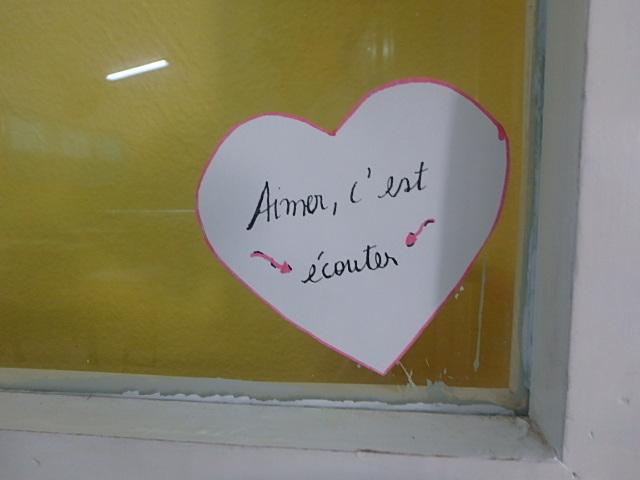 Aimer, c'est
écouter